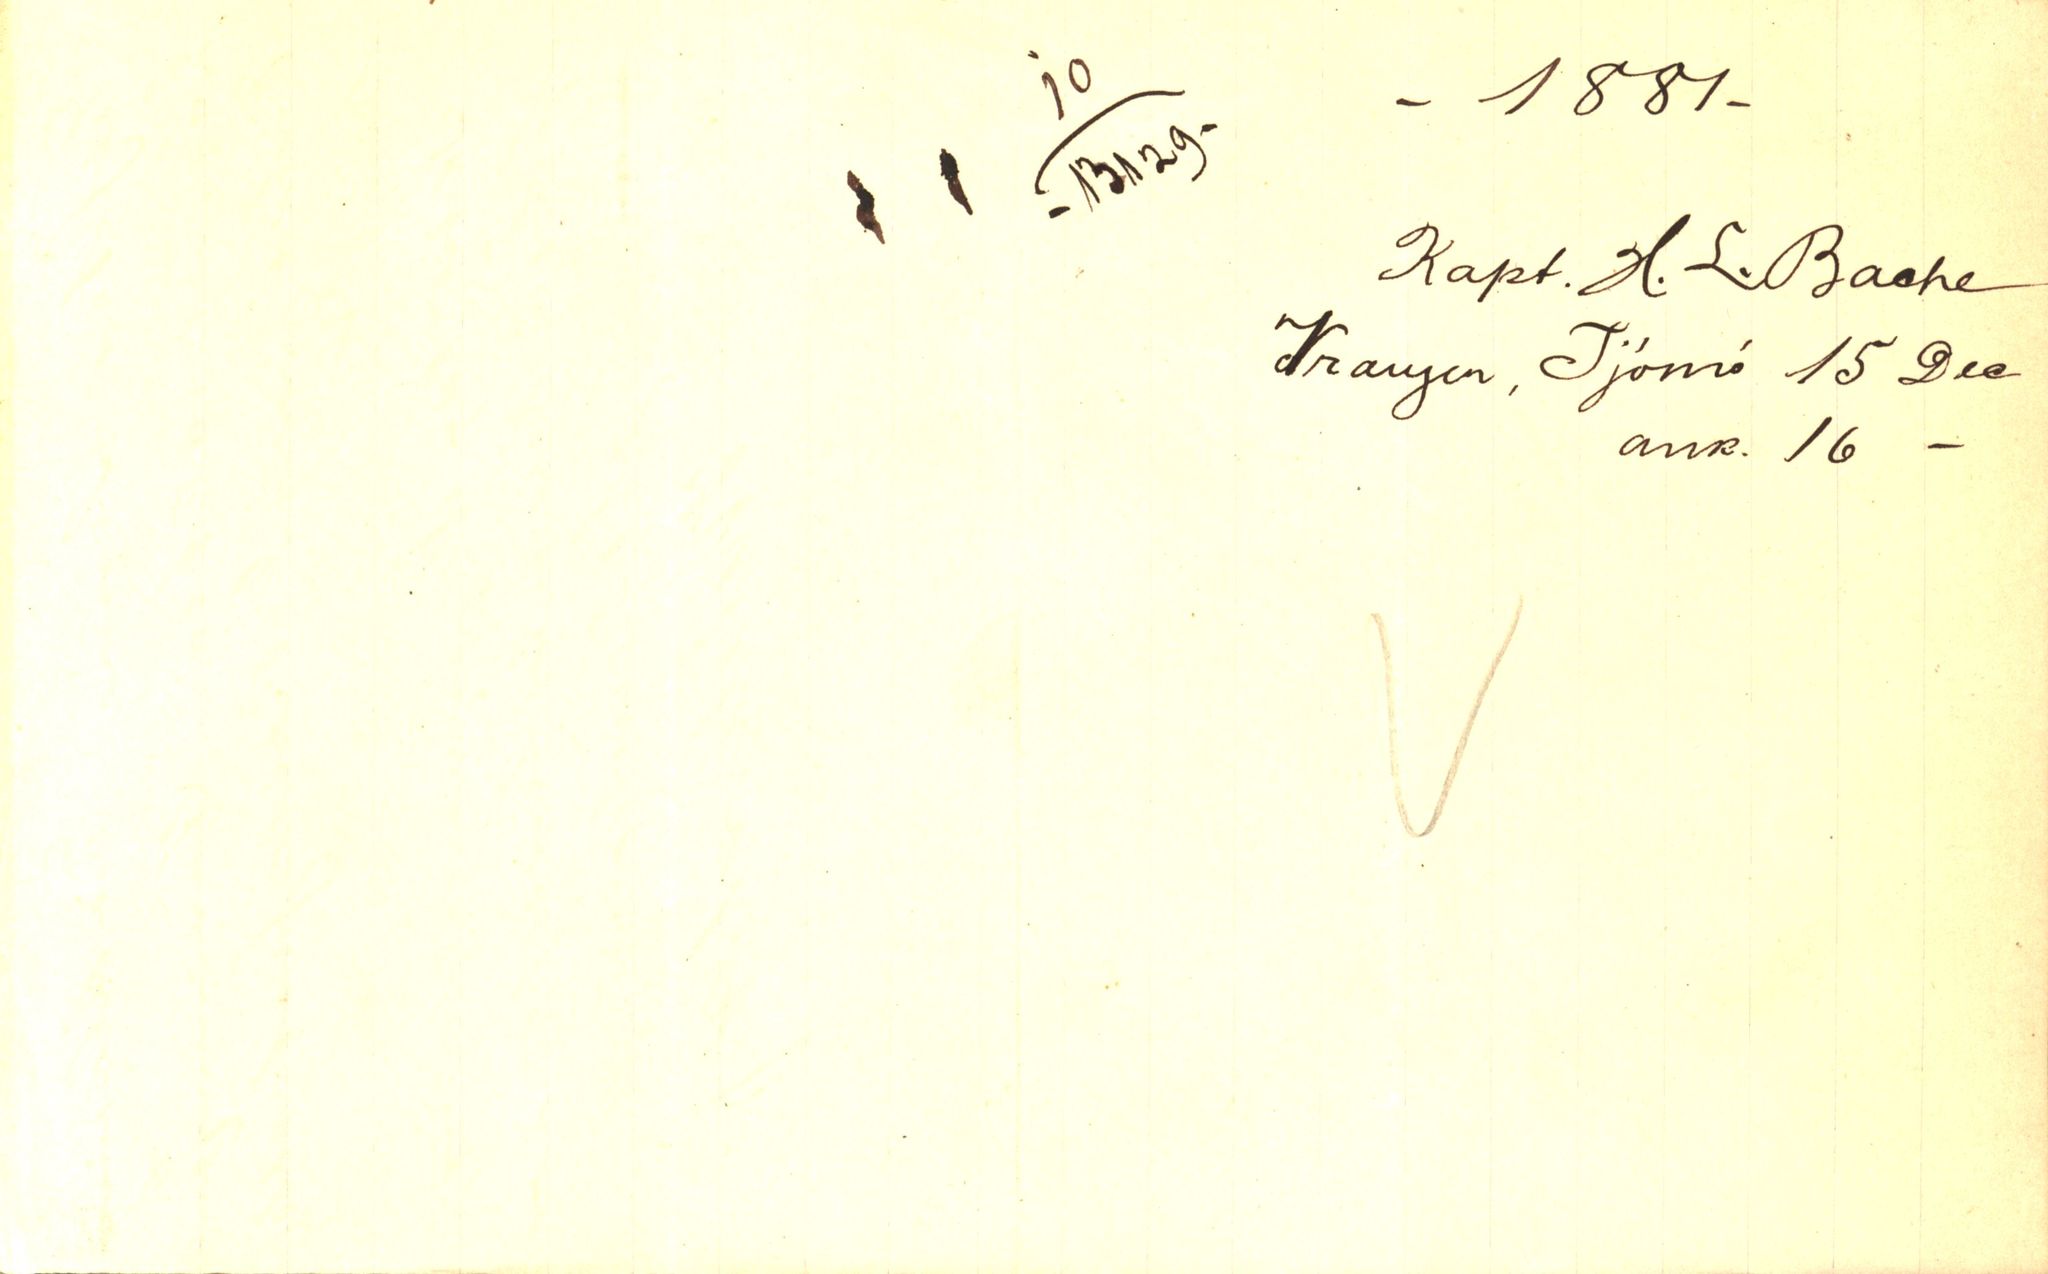 - 1881 -
10
- 13129 -
Kapt. H. L. Bache
Vrangen, Tjömö 15 Dec
ank. 16 -